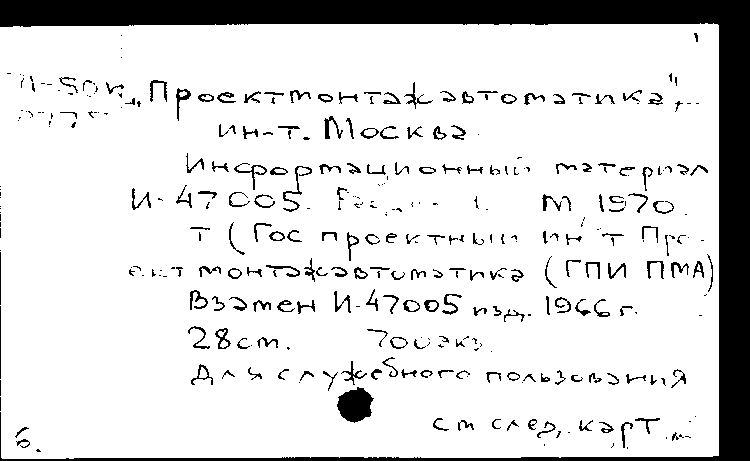 1
„Проектмонтажавтоматика",
ин-т. Москва.
Информационный материал
И-47005. 1. М, 1970.
т (Гос проектный ин т Про-
ект монтажавтоматика (ГПИ ПМА)
Взамен И-47005 изд. 1966 г.
28 см. 700 экз.
Для служебного пользования
см след. карт.
б.